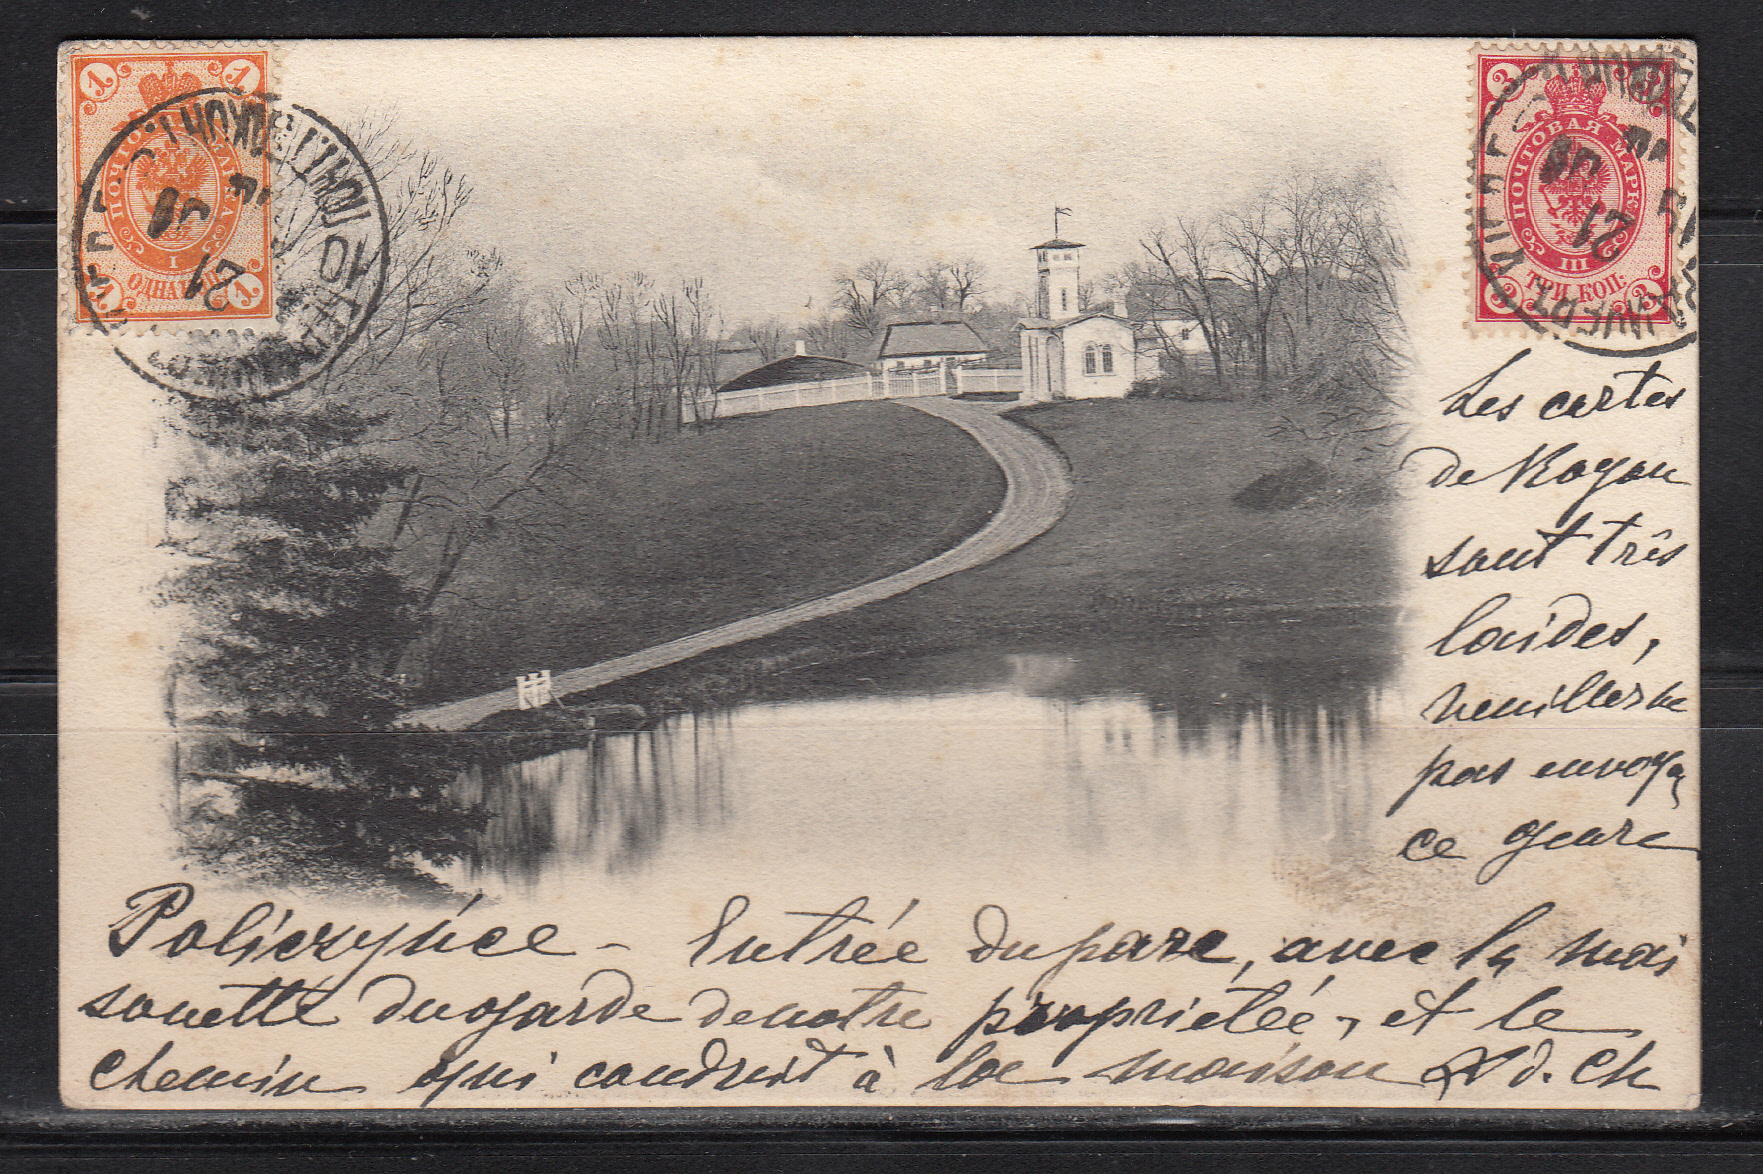 1 1
ПОЧТОВАЯ МАРКА
I
ОДНА КОП.
1 1
21
3
ПОЧТОВАЯ МАРКА
III
ТРИ КОП.
3 3
21
Les cartes
de Royan
sont très
laides,
veuillez ne
pas envoyer
ce genre
Policzyńce - Entrée du parc, avec la mai
sonette du garde de notre proprietée, et le
chemin qui conduit à la maison d. Ch